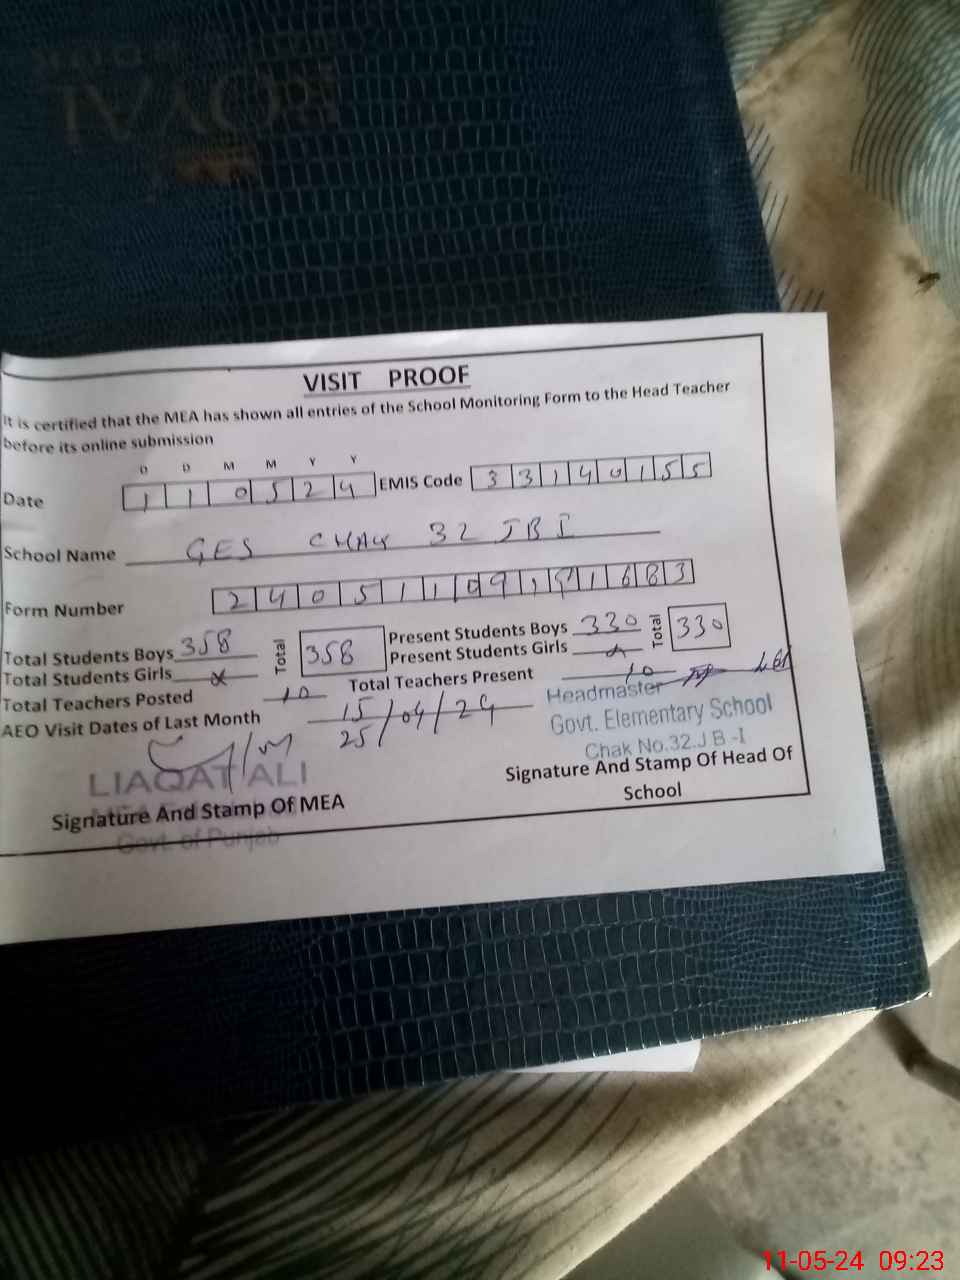 ROYAL
VISIT PROOF
It is certified that the MEA has shown all entries of the School Monitoring Form to the Head Teacher
before its online submission
D D M M Y Y
Date 1 1 0 5 2 4 EMIS Code 3 3 1 4 0 1 5 5
School Name GES CHAK 32 JB I
Form Number 2 4 0 5 1 1 0 9 1 5 1 6 8 3
Total Students Boys 358 Total 358 Present Students Boys 330 Total 330
Total Students Girls x Present Students Girls x
Total Teachers Posted 10 Total Teachers Present 10
AEO Visit Dates of Last Month 15/04/24
25
Headmaster
Govt. Elementary School
Chak No.32.J B -I
LIAQAT ALI
Signature And Stamp Of MEA
Govt. of Punjab
Signature And Stamp Of Head Of
School
11-05-24 09:23